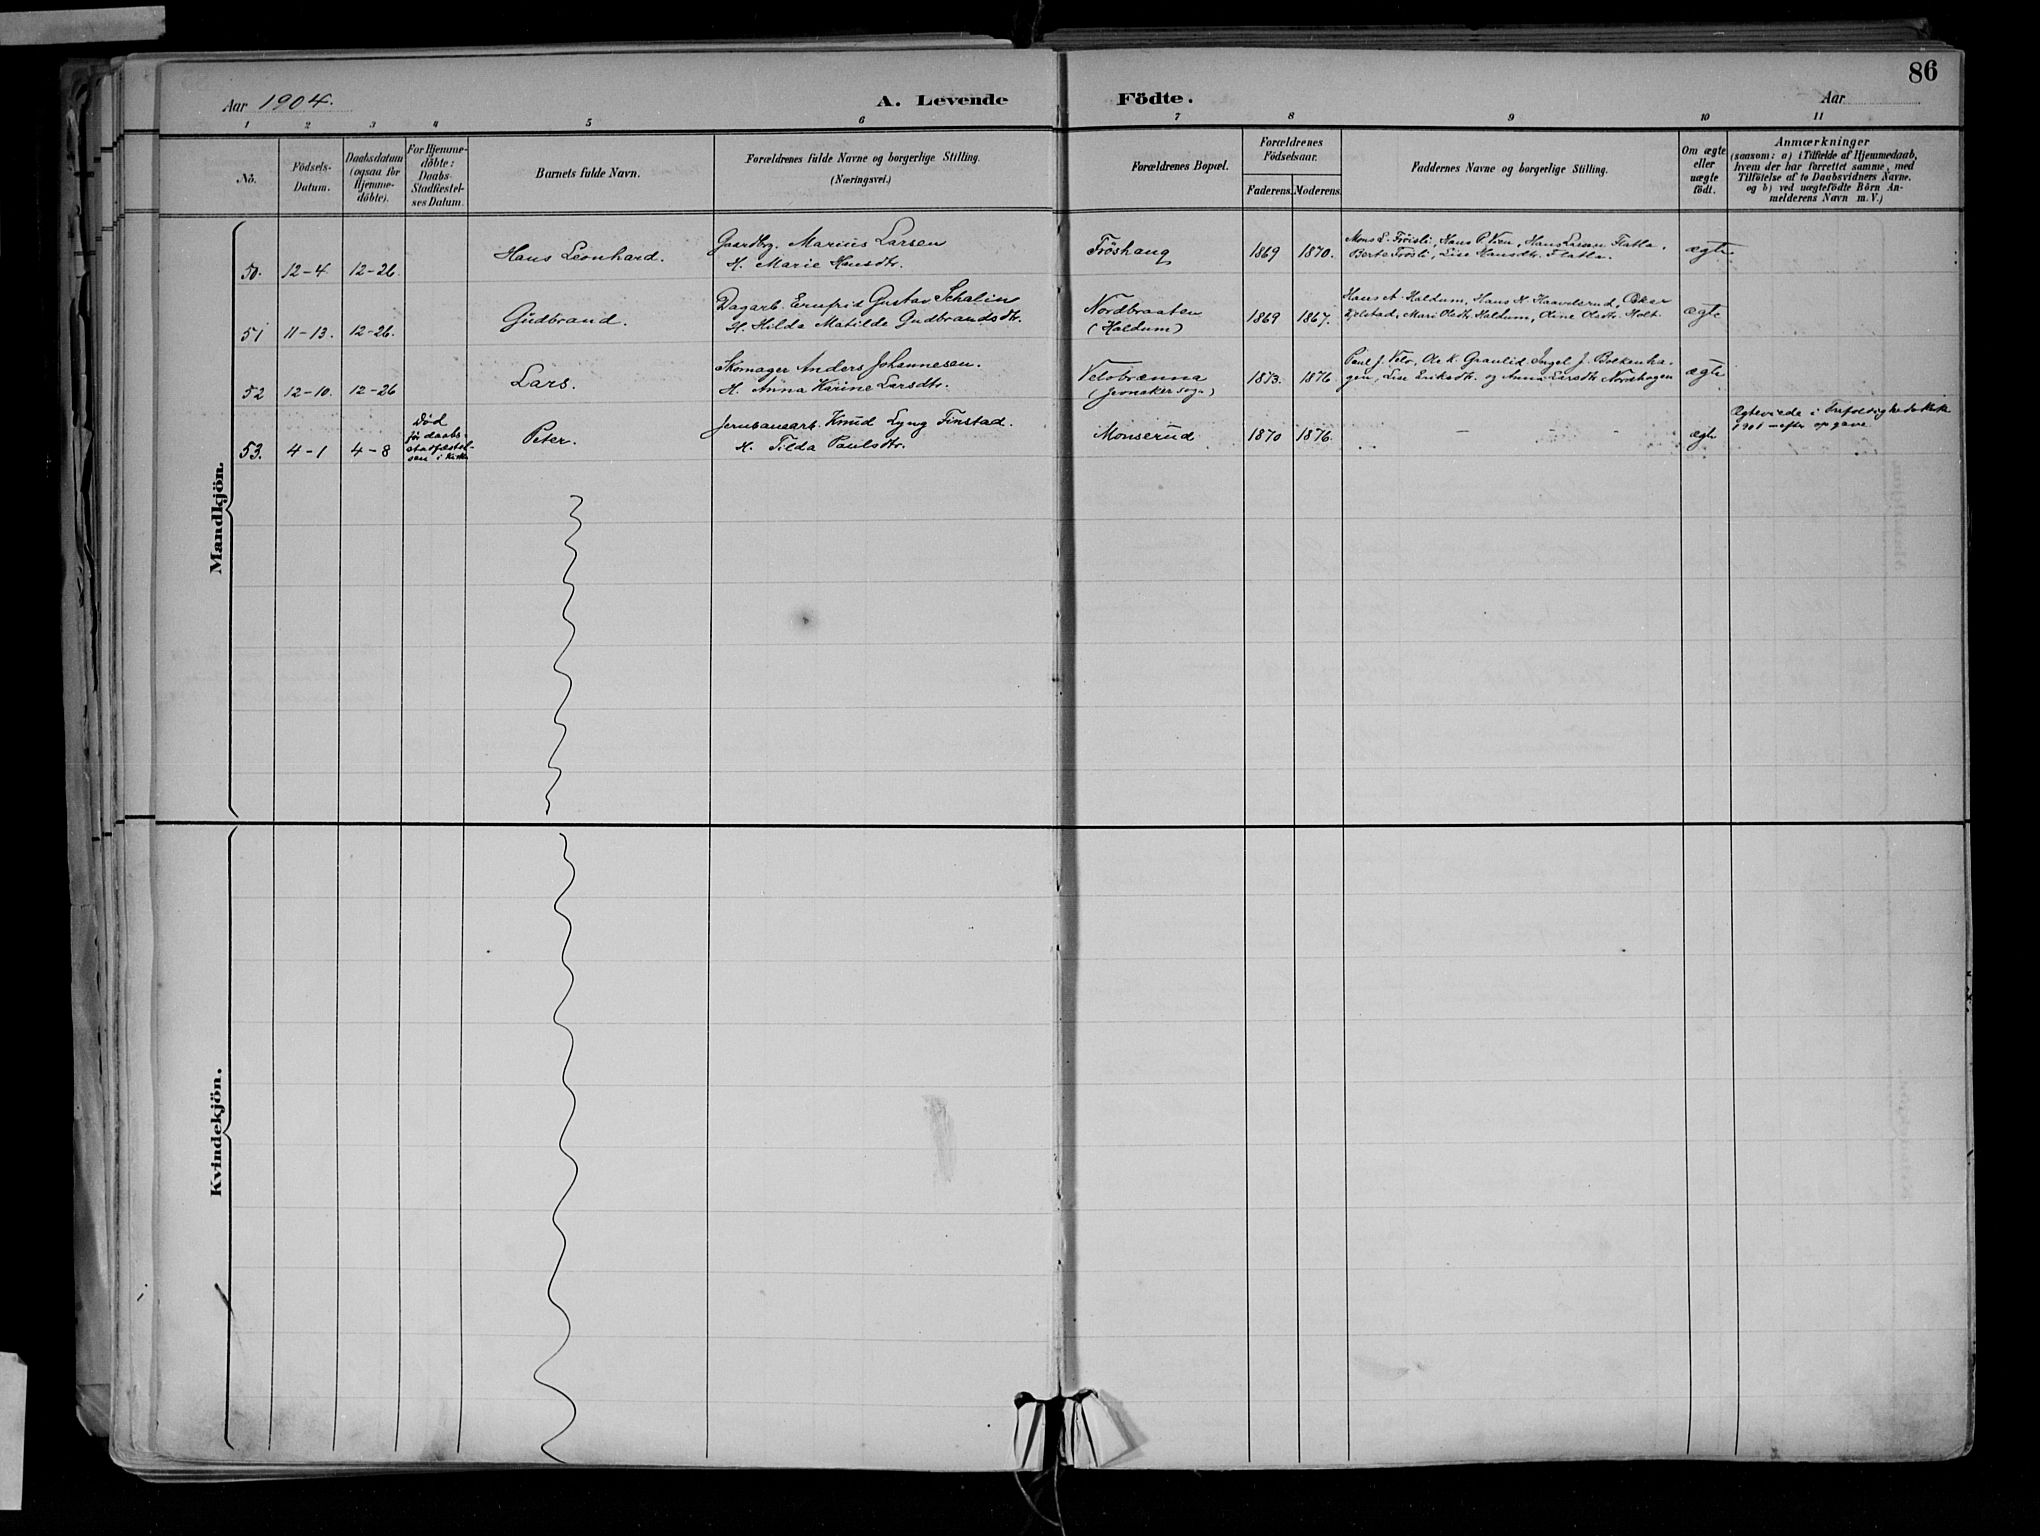 86
Aar 1904. A. Levende Födte. Aar
1 2 3 4 5 6 7 8 9 10 11
Nô.
Födsels-
Datum.
Daabsdatum
(ogsaa for
Hjemme-
döbte).
For Hjemme-
döbte:
Daabs-
Stadfæstel-
ses Datum.
Barnets fulde Navn.
Forældrenes fulde Navne og borgerlige Stilling.
(Næringsvei.)
Forældrenes Bopæl.
Forældrenes
Födselsaar.
Faderens. Moderens.
Faddernes Navne og borgerlige Stilling.
Om ægte
eller
uægte
födt.
Anmærkninger
(saasom: a) i Tilfælde af Hjemmedaab,
hvem der har forrettet samme, med
Tilföielse af to Daabsvidners Navne.
og b) ved uægtefödte Börn An-
melderens Navn m.V.)
Mandkjön.
50. 12-4 12-26 Hans Leonhard.
Gaardbr. Marius Larsen
H. Marie Hansdtr.
Fröshaug 1869 1870.
Mons L. Fröisli, Hans P. Vien, Hans Larsen Flatla.
Berte Frösli, Lise Hansdtr. Flatla.
ægte
51 11-13. 12-26. Gudbrand.
Dagarb. Ernfrid Gustav Schalin
H. Hilda Matilde Gudbrandsdtr.
Nordbraaten
(Haldum)
1869 1867.
Hans A. Haldum, Hans H. Haavderud, Oskar
Kjelstad, Mari Olsdtr. Haldum, Oline Olsdtr. Holt.
ægte
52 12-10. 12-26 Lars.
Skomager Anders Johannesen.
H. Anna Karine Larsdtr.
Velobrænna
(Jevnaker sogn)
1873. 1876
Paul J. Velo, Ole K. Granlid, Ingel J. Bolkenha-
gen, Lise Eriksdtr. og Anna Larsdtr. Nordhagen
ægte
53. 4-1 4-8
Död
för daabs-
stadfæstel-
sen i kirke
Peter.
Jernbanearb. Knud Lyng Finstad.
H. Tilda Paulsdtr.
Monserud 1870 1876. - - - -
ægte
Ægteviede i Trefoldighedskirke
1901 - efter opgave
Kvindekjön.